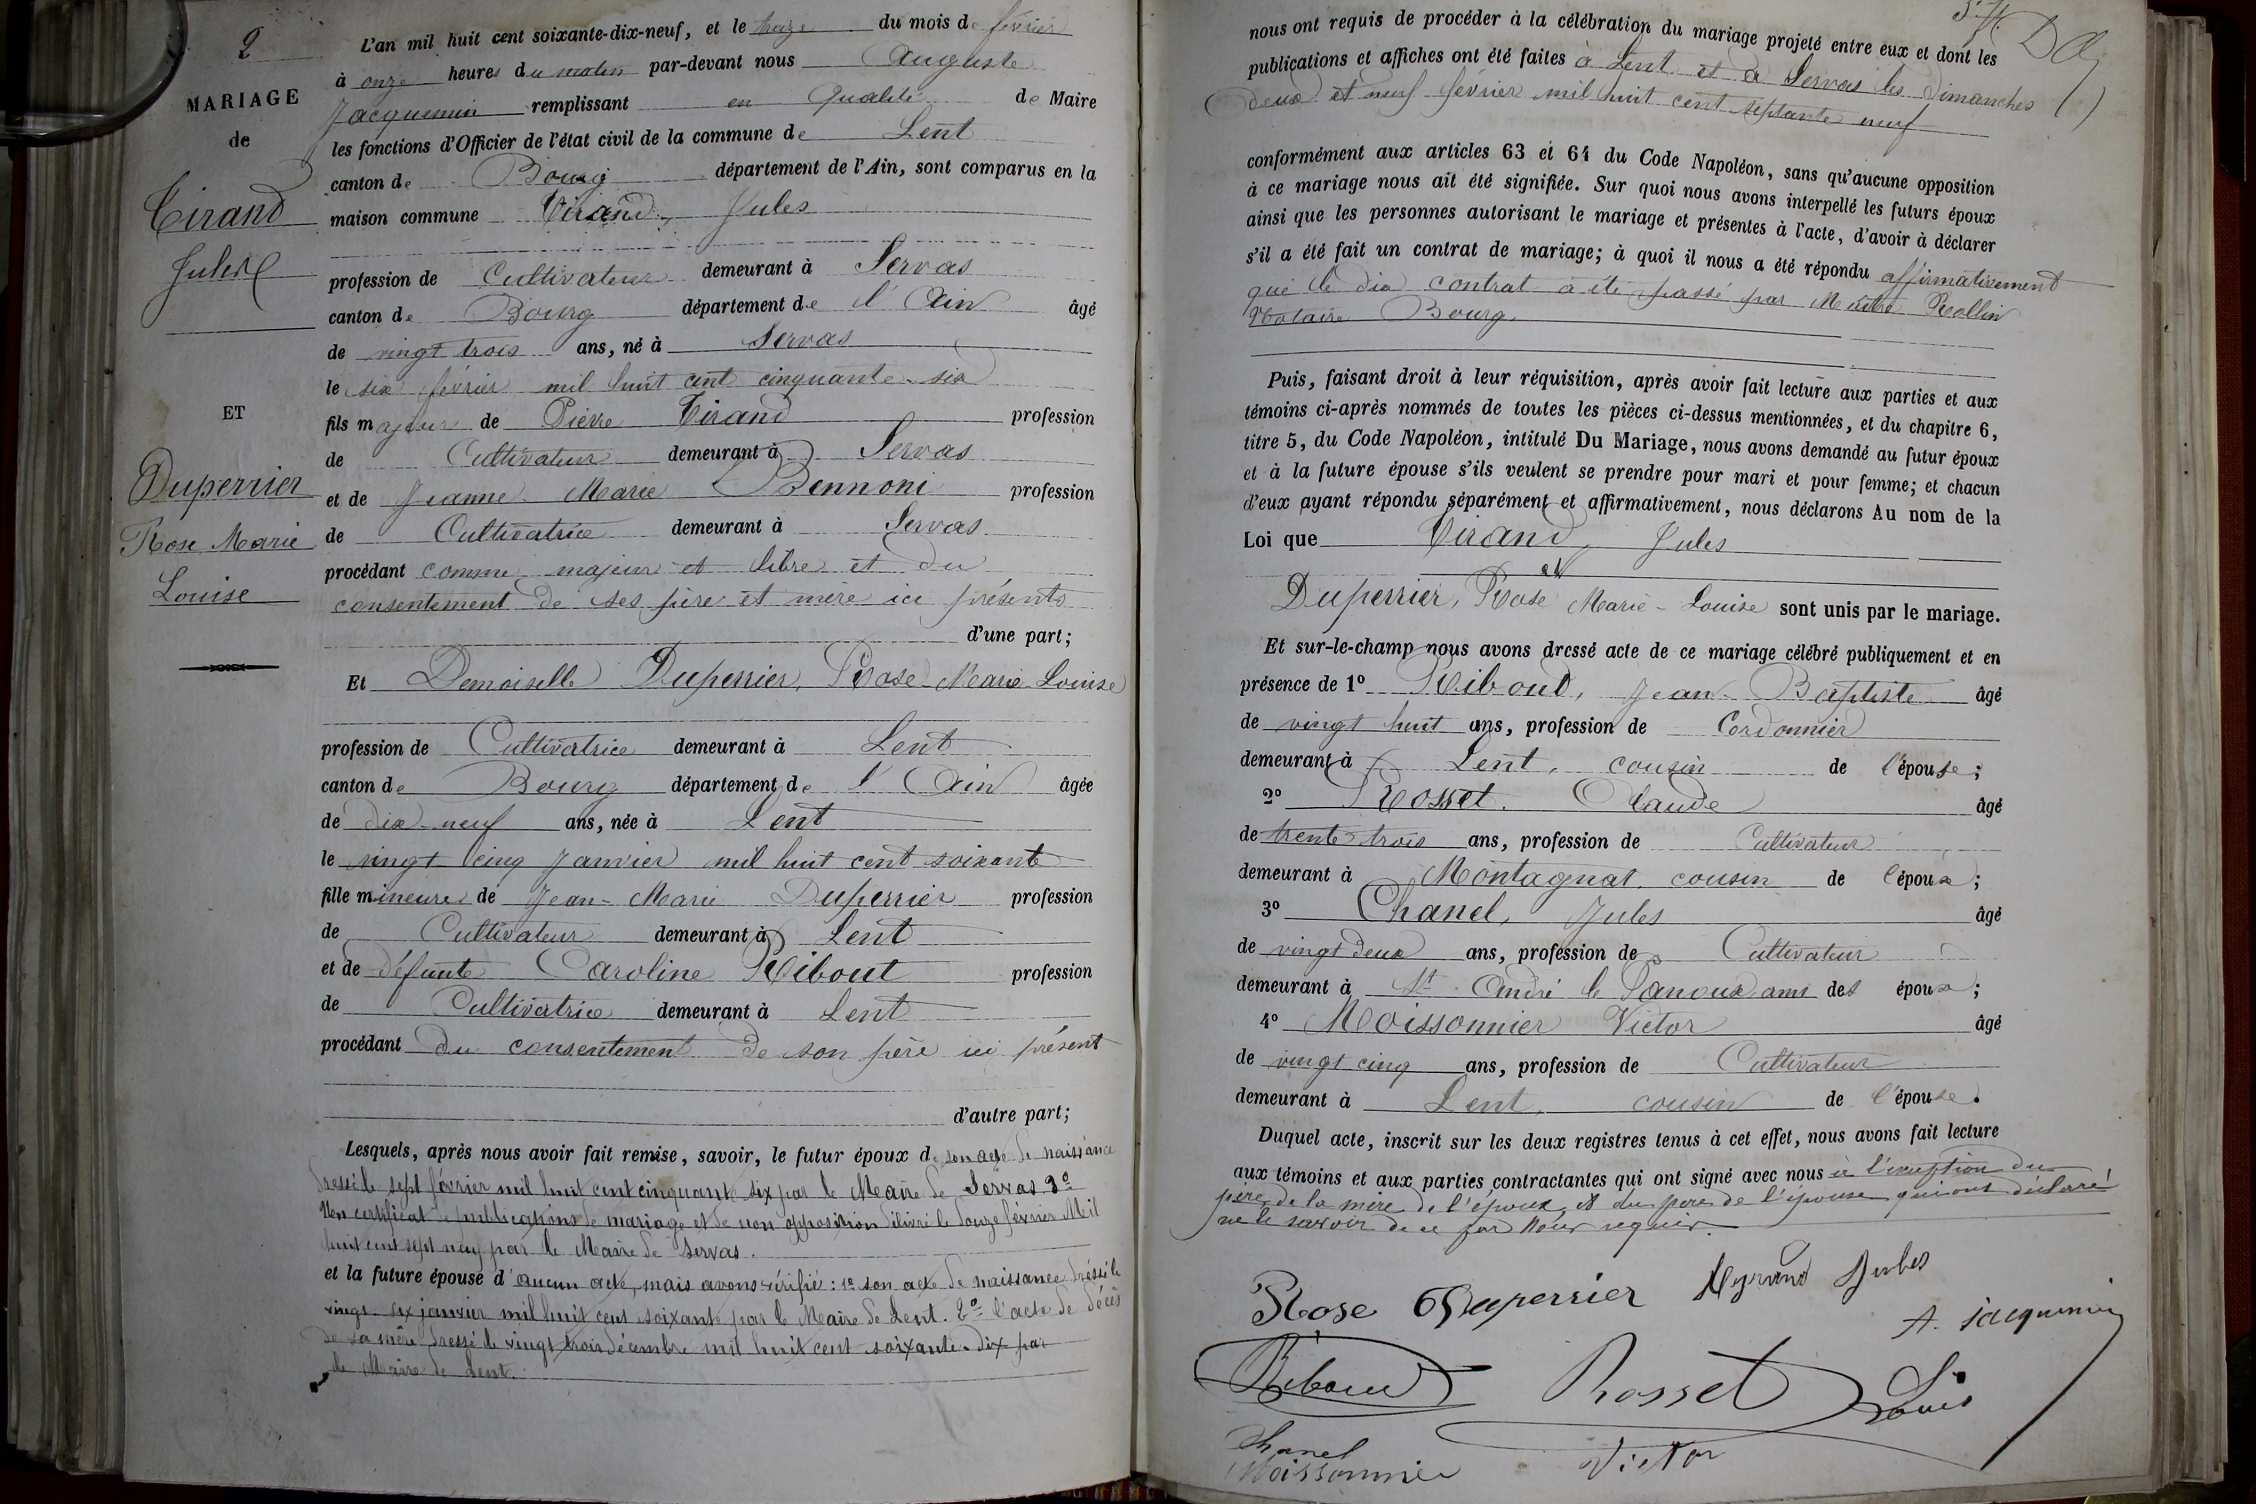 2
MARIAGE
de
Tirand
Jules
ET
Duperrier
Rose Marie
Louise
L'an mil huit cent soixante-dix-neuf, et le treize du mois de février
à onze heures du matin par-devant nous Auguste
Jacquemin remplissant en qualité de Maire
les fonctions d'Officier de l'état civil de la commune de Lent
canton de Bourg département de l'Ain, sont comparus en la
maison commune Tirand, Jules
profession de Cultivateur demeurant à Servas
canton de Bourg département de l'Ain âgé
de vingt trois ans, né à Servas
le six février mil huit cent cinquante-six
fils majeur de Pierre Tirand profession
de Cultivateur demeurant à Servas
et de Jeanne Marie Bennoni profession
de Cultivatrice demeurant à Servas
procédant comme majeur et libre et du
consentement de ses père et mère ici présents
d'une part;
Et Demoiselle Duperrier, Rose-Marie-Louise
profession de Cultivatrice demeurant à Lent
canton de Bourg département de l'Ain âgée
de dix-neuf ans, née à Lent
le vingt cinq Janvier mil huit cent soixante
fille mineure de Jean-Marie Duperrier profession
de Cultivateur demeurant à Lent
et de défunte Caroline Ribout profession
de Cultivatrice demeurant à Lent
procédant du consentement de son père ici présent
d'autre part;
Lesquels, après nous avoir fait remise, savoir, le futur époux de son acte de naissance
dressé le sept février mil huit cent cinquante six par le Maire de Servas 2º
Un certificat de publications de mariage et de non opposition délivré le douze février Mil
huit cent sept neuf par le Maire de Servas.
et la future épouse d'aucun acte, mais avons vérifié : 1º son acte de naissance dressé le
vingt-six janvier mil huit cent soixante par le Maire de Lent. 2º l'acte de décès
de sa mère dressé le vingt trois décembre mil huit cent soixante-dix par
le Maire de Lent.
nous ont requis de procéder à la célébration du mariage projeté entre eux et dont les
publications et affiches ont été faites à Lent et à Servas les dimanches
deux et neuf février mil huit cent septante neuf
conformément aux articles 63 et 64 du Code Napoléon, sans qu'aucune opposition
à ce mariage nous ait été signifiée. Sur quoi nous avons interpellé les futurs époux
ainsi que les personnes autorisant le mariage et présentes à l'acte, d'avoir à déclarer
s'il a été fait un contrat de mariage; à quoi il nous a été répondu affirmativement
que le dia contrat a été passé par Maître Rollin
Notaire Bourg.
Puis, faisant droit à leur réquisition, après avoir fait lecture aux parties et aux
témoins ci-après nommés de toutes les pièces ci-dessus mentionnées, et du chapitre 6,
titre 5, du Code Napoléon, intitulé Du Mariage, nous avons demandé au futur époux
et à la future épouse s'ils veulent se prendre pour mari et pour femme; et chacun
d'eux ayant répondu séparément et affirmativement, nous déclarons Au nom de la
Loi que Tirand, Jules
et
Duperrier, Rose Marie-Louise sont unis par le mariage.
Et sur-le-champ nous avons dressé acte de ce mariage célébré publiquement et en
présence de 1º Riboud, Jean-Baptiste âgé
de vingt huit ans, profession de Cordonnier
demeurant à Lent, cousin de l'épouse;
2º Rosset. Claude âgé
de trente trois ans, profession de Cultivateur
demeurant à Montagnat. cousin de l'époux;
3º Chanel, Jules âgé
de vingt deux ans, profession de Cultivateur
demeurant à St. André le Panoux ami des époux;
4º Moissonnier Victor âgé
de vingt cinq ans, profession de Cultivateur
demeurant à Lent, cousin de l'épouse.
Duquel acte, inscrit sur les deux registres tenus à cet effet, nous avons fait lecture
aux témoins et aux parties contractantes qui ont signé avec nous à l'exception du
père de la mère de l'époux et du père de l'épouse qui ont déclaré
ne le savoir de ce par Nous requis.
Rose Duperrier Jules
A. Jacquemin
Riboud Rosset Louis
Chanel
Moissonnier Victor